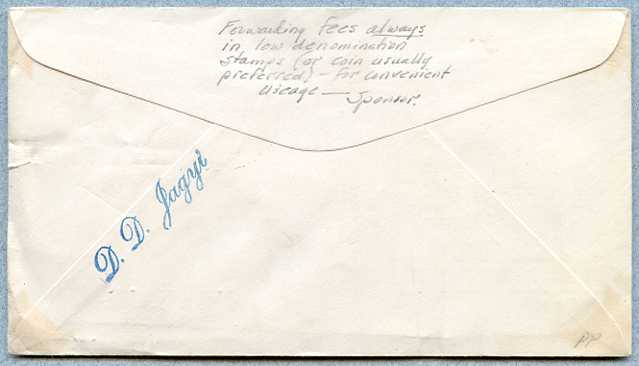 Forwarding fees always
in low denomination
stamps (or coin usually
preferred) – for convenient
useage — Sponsor.
D. D. Jagyi
PP